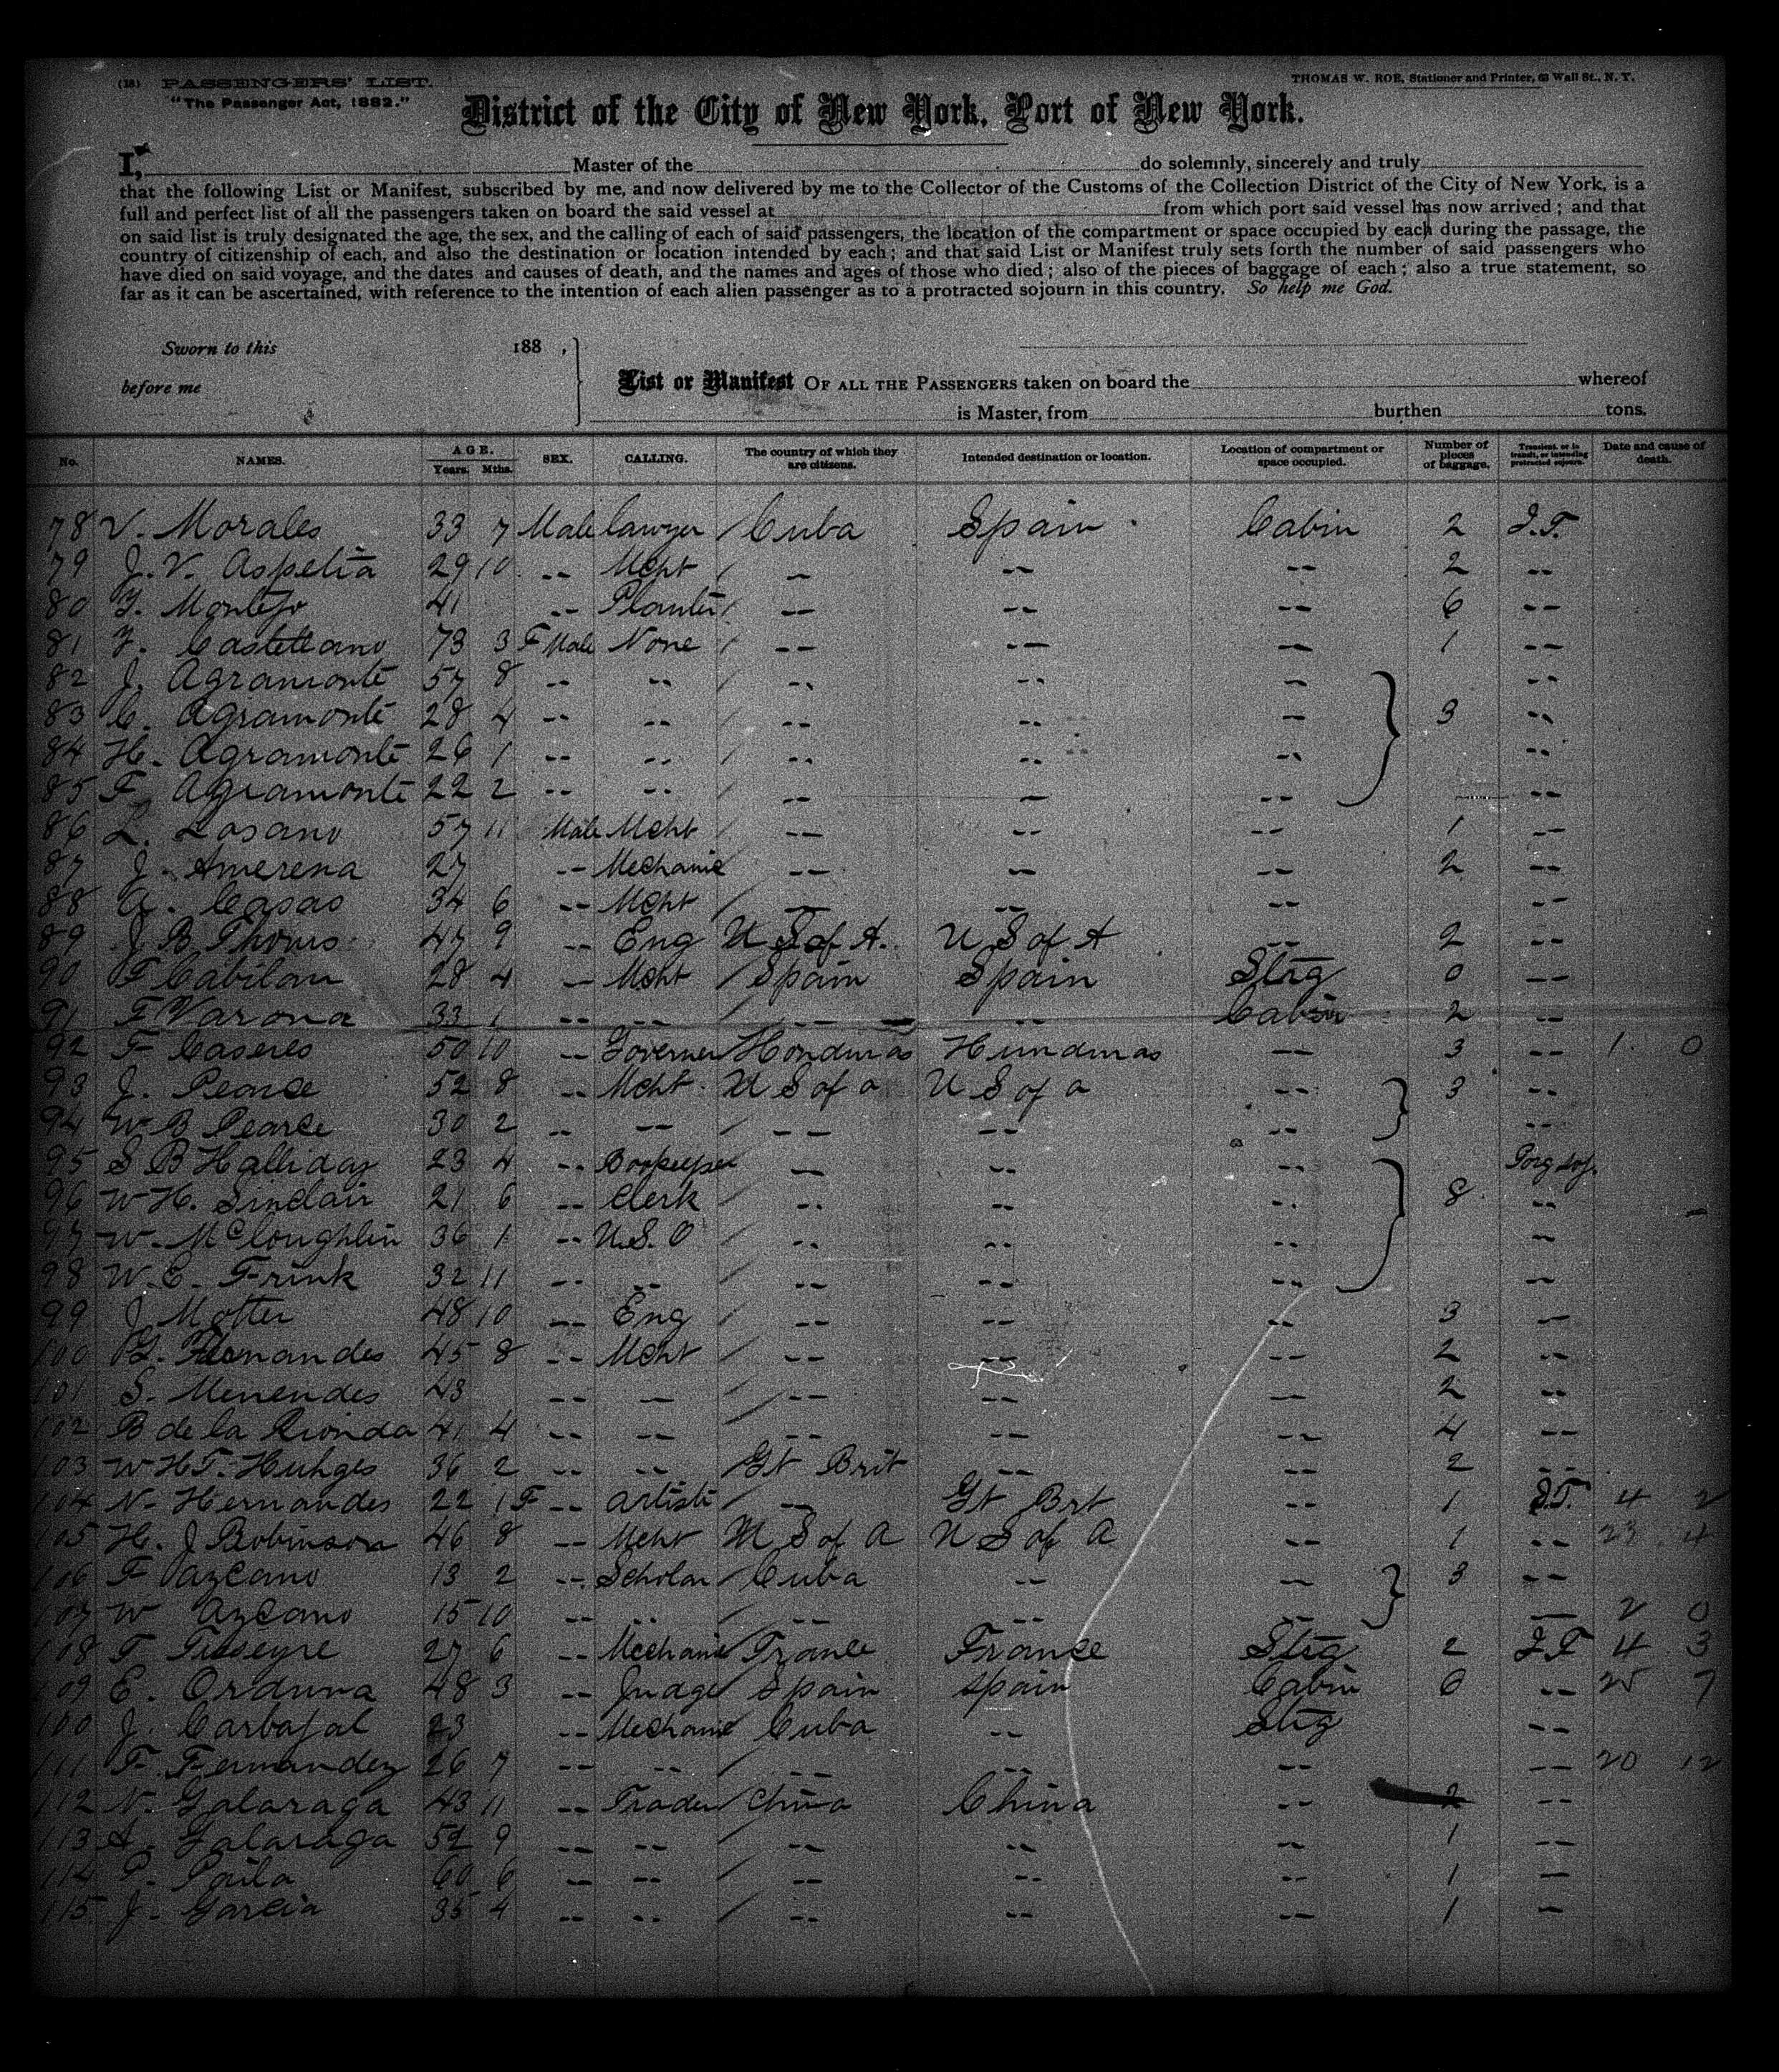 (18) PASSENGERS' LIST.
THOMAS W. ROE, Stationer and Printer, 63 Wall St., N. Y.
"The Passenger Act, 1882."
District of the City of New York, Port of New York.
I, Master of the do solemnly, sincerely and truly
that the following List or Manifest, subscribed by me, and now delivered by me to the Collector of the Customs of the Collection District of the City of New York, is a
full and perfect list of all the passengers taken on board the said vessel at from which port said vessel has now arrived; and that
on said list is truly designated the age, the sex, and the calling of each of said passengers, the location of the compartment or space occupied by each during the passage, the
country of citizenship of each, and also the destination or location intended by each; and that said List or Manifest truly sets forth the number of said passengers who
have died on said voyage, and the dates and causes of death, and the names and ages of those who died; also of the pieces of baggage of each; also a true statement, so
far as it can be ascertained, with reference to the intention of each alien passenger as to a protracted sojourn in this country. So help me God.
Sworn to this 188 ,
before me
List or Manifest OF ALL THE PASSENGERS taken on board the whereof
is Master, from burthen tons.
No. NAMES. AGE. Years. Mths. SEX. CALLING. The country of which they are citizens. Intended destination or location. Location of compartment or space occupied. Number of pieces of baggage. Transient, or in transit, or intending protracted sojourn. Date and cause of death.
78 V. Morales 33 7 Male lawyer / Cuba Spain Cabin 2 I.T.
79 J. V. Aspelia 29 10 -- Mcht / -- -- -- 2 --
80 Y. Montejo 41 -- Planter / -- -- -- 6 --
81 Y. Castellano 73 3 F Male None / -- -- -- 1 --
82 J. Agramonte 57 8 -- -- / -- -- -- --
83 C. Agramonte 28 4 -- -- / -- -- -- 3 --
84 H. Agramonte 26 1 -- -- / -- -- -- --
85 F. Agramonte 22 2 -- -- -- -- -- --
86 L. Losano 57 11 Male Mcht -- -- -- 1 --
87 J. Amerena 27 -- Mechanic -- -- -- 2 --
88 A. Casas 34 6 -- Mcht / -- -- -- --
89 J B Thoms 47 9 -- Eng U S of A. U S of A -- 2 --
90 F Cabilan 28 4 -- Mcht / Spain Spain Stig 0 --
91 F Varona 33 1 -- -- -- -- Cabin 2 --
92 F Caseres 50 10 -- Governer Honduras Hunduras -- 3 -- 1 0
93 J. Pearce 52 8 -- Mcht U S of a U S of a -- 3 --
94 W B Pearce 30 2 -- -- / -- -- -- --
95 S B Halliday 23 4 -- Bookeeper -- -- --
96 W H. Sinclair 21 6 -- Clerk / -- -- -- 8 --
97 W. McCloughlin 36 1 -- U.S.O / -- -- -- --
98 W. E. Frink 32 11 -- -- / -- -- -- --
99 J Motter 48 10 -- Eng / -- -- -- 3 --
100 Y. Fernandes 45 8 -- Mcht / -- -- -- 2 --
101 S. Menendes 43 -- -- / -- -- -- 2 --
102 B de la Rionda 41 4 -- -- / -- -- -- 4 --
103 W H T. Huhges 36 2 -- -- / Gt Brit -- -- 2 --
104 N. Hernandes 22 1 F -- artiste / -- Gt Brt -- 1 I.T. 4 2
105 H. J Bobinson 46 8 -- Mcht U S of A U S of A -- 1 -- 23 4
106 F azcano 13 2 -- Scholar / Cuba -- -- 3 --
107 W Azcano 15 10 -- -- / -- -- -- -- 2 0
108 F Tisseyre 27 6 -- Mechanic France France Stig 2 I T 4 3
109 E. Orduna 48 3 -- Judge Spain spain Cabin 6 -- 25 7
100 J. Carbajal 23 -- Mechanic Cuba -- Stig --
111 F. Fernandez 26 7 -- -- / -- -- -- -- 20 12
112 N. Galaraga 43 11 -- Trader / China China -- 2 --
113 A. Galaraga 52 9 -- -- / -- -- -- 1 --
114 P. Paila 60 6 -- -- / -- -- -- 1 --
115 J. Garcia 35 4 -- -- / -- -- -- 1 --